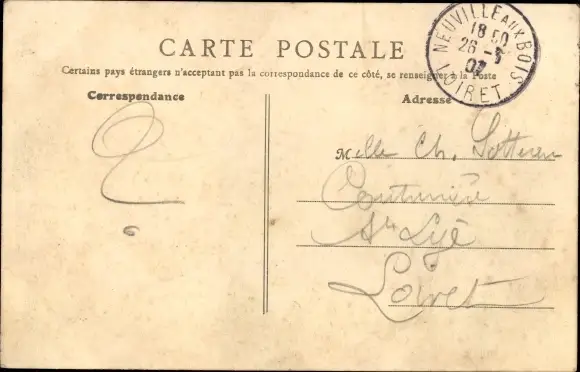 CARTE POSTALE
Certains pays étrangers n'acceptant pas la correspondance de ce côté, se renseigner à la Poste
Correspondance
Adresse
NEUVILLE AUX BOIS
18 50
26 -5
07
LOIRET
Melle Ch.
Couturière
St Lyé
Loiret